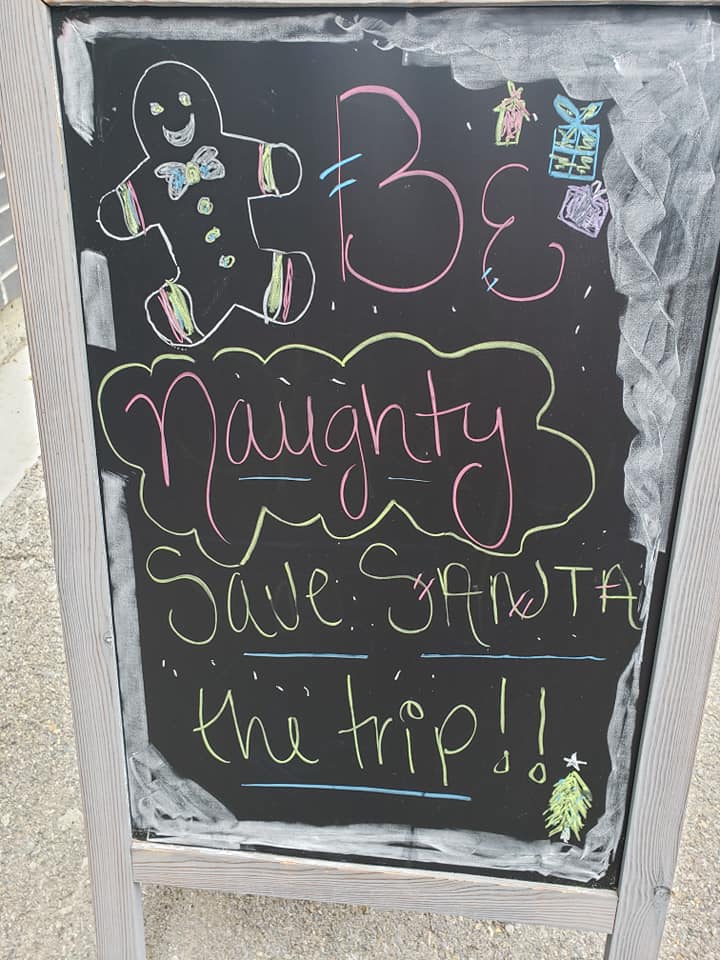 Be
Naughty
Save SANTA
the trip!!